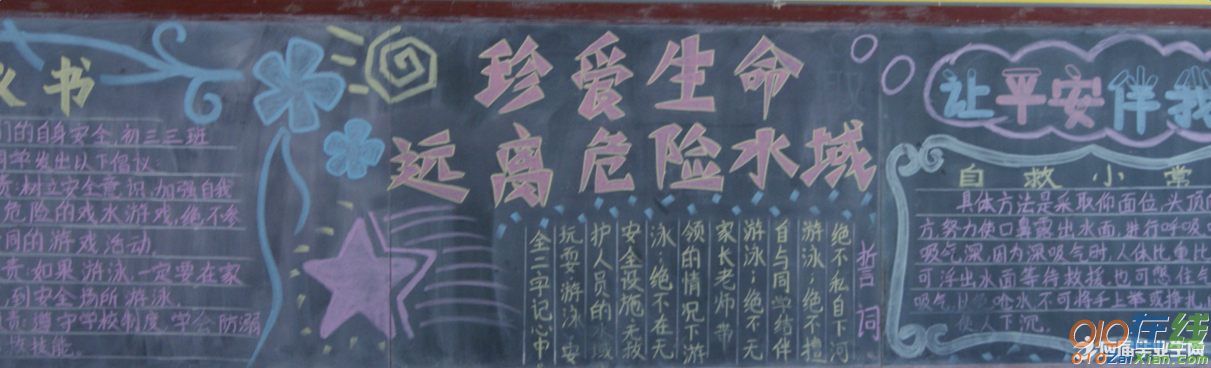 书
们的自身安全,初三三班
同学发出以下倡议:
责:树立安全意识,加强自我
危险的戏水游戏,绝不参
同的游戏活动。
责:如果游泳,一定要在家
,到安全场所游泳。
责:遵守学校制度,学会防溺
技能。
珍爱生命
远离危险水域
誓词
绝不私自下河
游泳;绝不擅
自与同学结伴
游泳;绝不无
家长老师带
领的情况下游
泳;绝不在无
安全设施无救
护人员的水域
玩耍游泳,安
全二字记心中
让平安伴我
自救小常
具体方法是采取仰面位,头顶
方,努力使口鼻露出水面,进行呼吸
吸气深,因为深吸气时,人体比重比
可浮出水面等待救援,也可憋住气
吸气以免呛水不可将手上举或挣扎,
使人下沉。
010在线
应届毕业生网
010zaixian.com